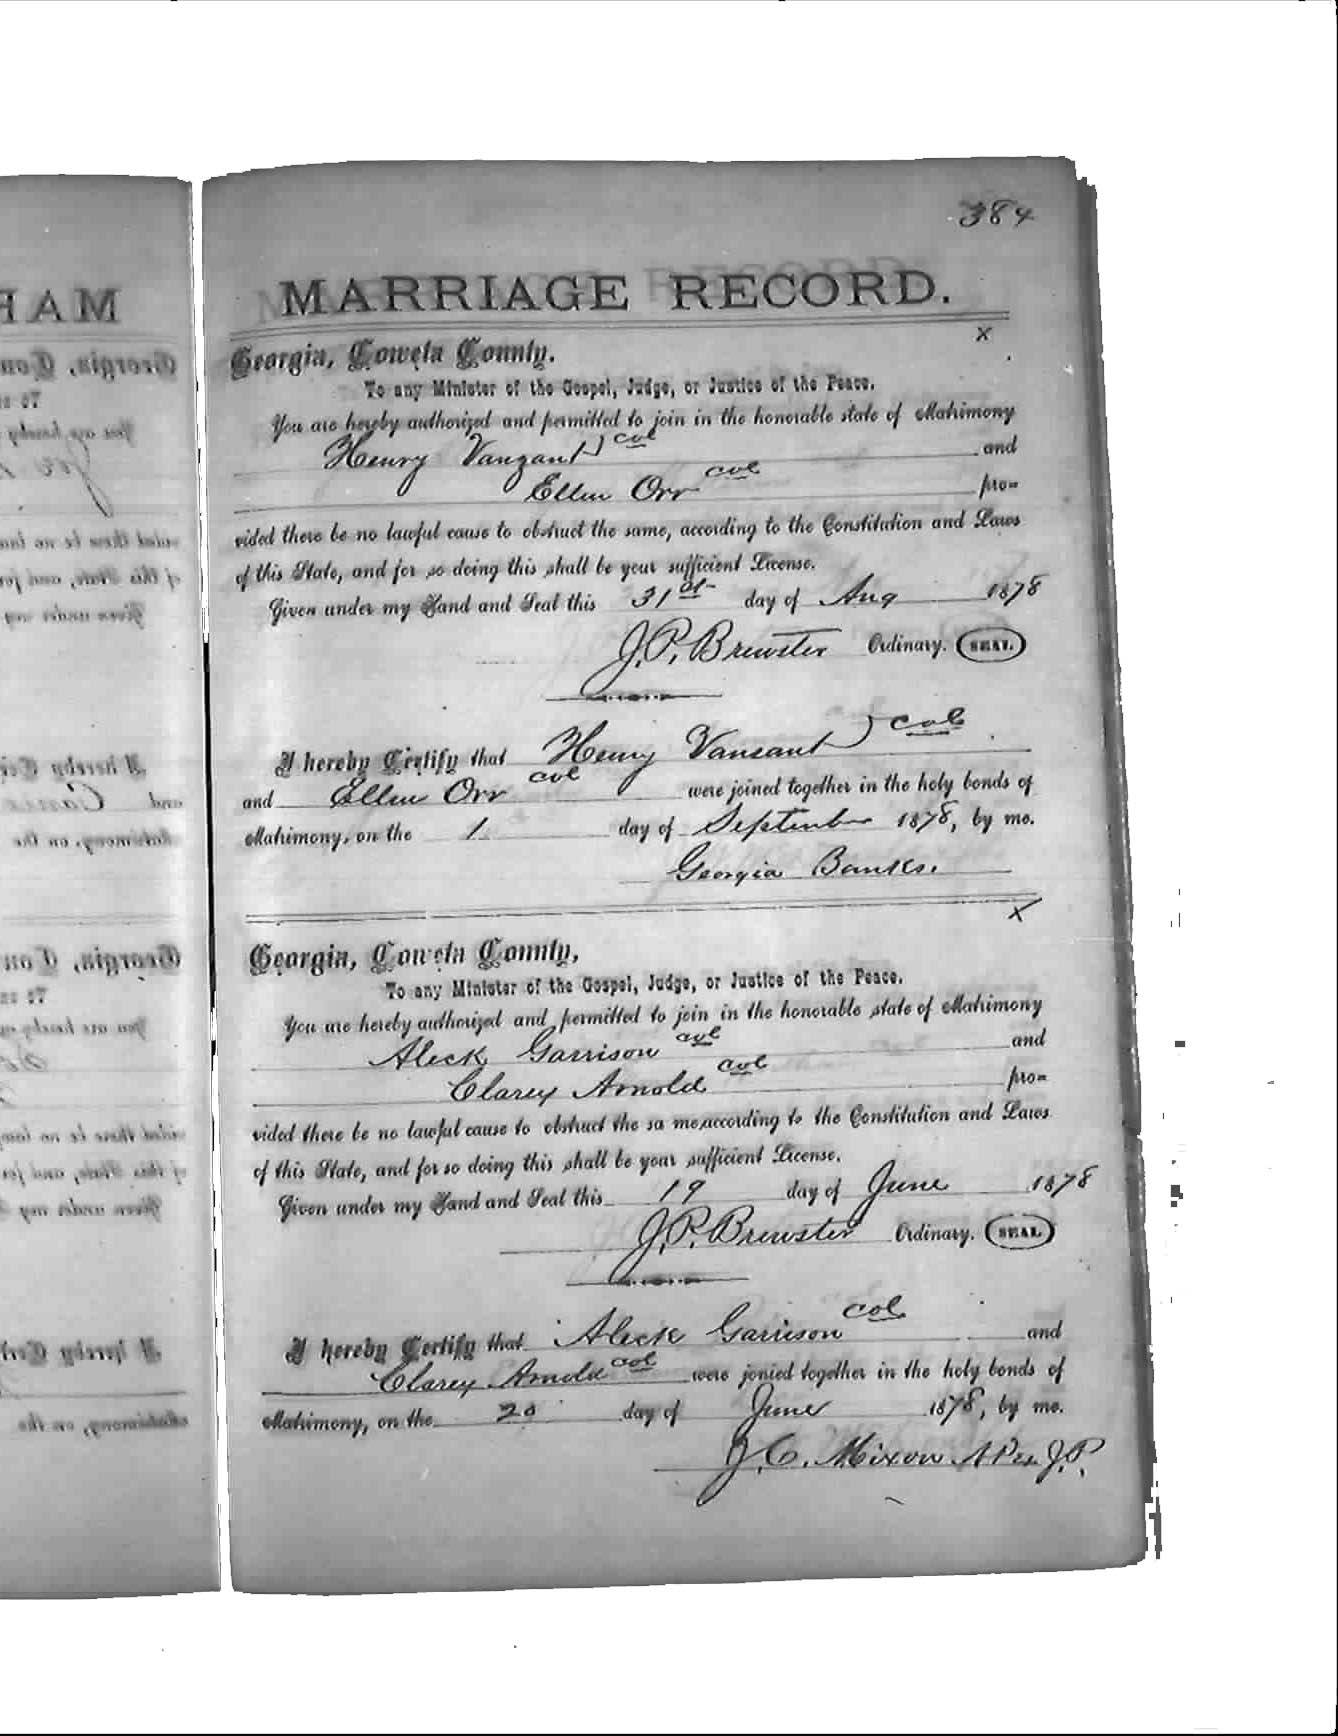 384
MARRIAGE RECORD.
x
Georgia, Coweta County.
To any Minister of the Gospel, Judge, or Justice of the Peace.
You are hereby authorized and permitted to join in the honorable state of Matrimony
Henry Vanzant col and
Ellen Orr col pro=
vided there be no lawful cause to obstruct the same, according to the Constitution and Laws
of this State, and for so doing this shall be your sufficient License.
Given under my Hand and Seal this 31st day of Aug 1878
J. P. Brewster Ordinary. SEAL.
I hereby Certify that Henry Vansant col
and Ellen Orr col were joined together in the holy bonds of
Matrimony, on the 1 day of September 1878, by me.
Georgia Banks.
x
Georgia, Coweta County,
To any Minister of the Gospel, Judge, or Justice of the Peace.
You are hereby authorized and permitted to join in the honorable state of Matrimony
Aleck Garrison col and
Clarey Arnold col pro=
vided there be no lawful cause to obstruct the sa me,according to the Constitution and Laws
of this State, and for so doing this shall be your sufficient License.
Given under my Hand and Seal this 19 day of June 1878
J. P. Brewster Ordinary. SEAL.
I hereby Certify that Aleck Garrison col and
Clarey Arnold col were jonied together in the holy bonds of
Matrimony, on the 20 day of June 1878, by me.
J. C. Mixon J.P.